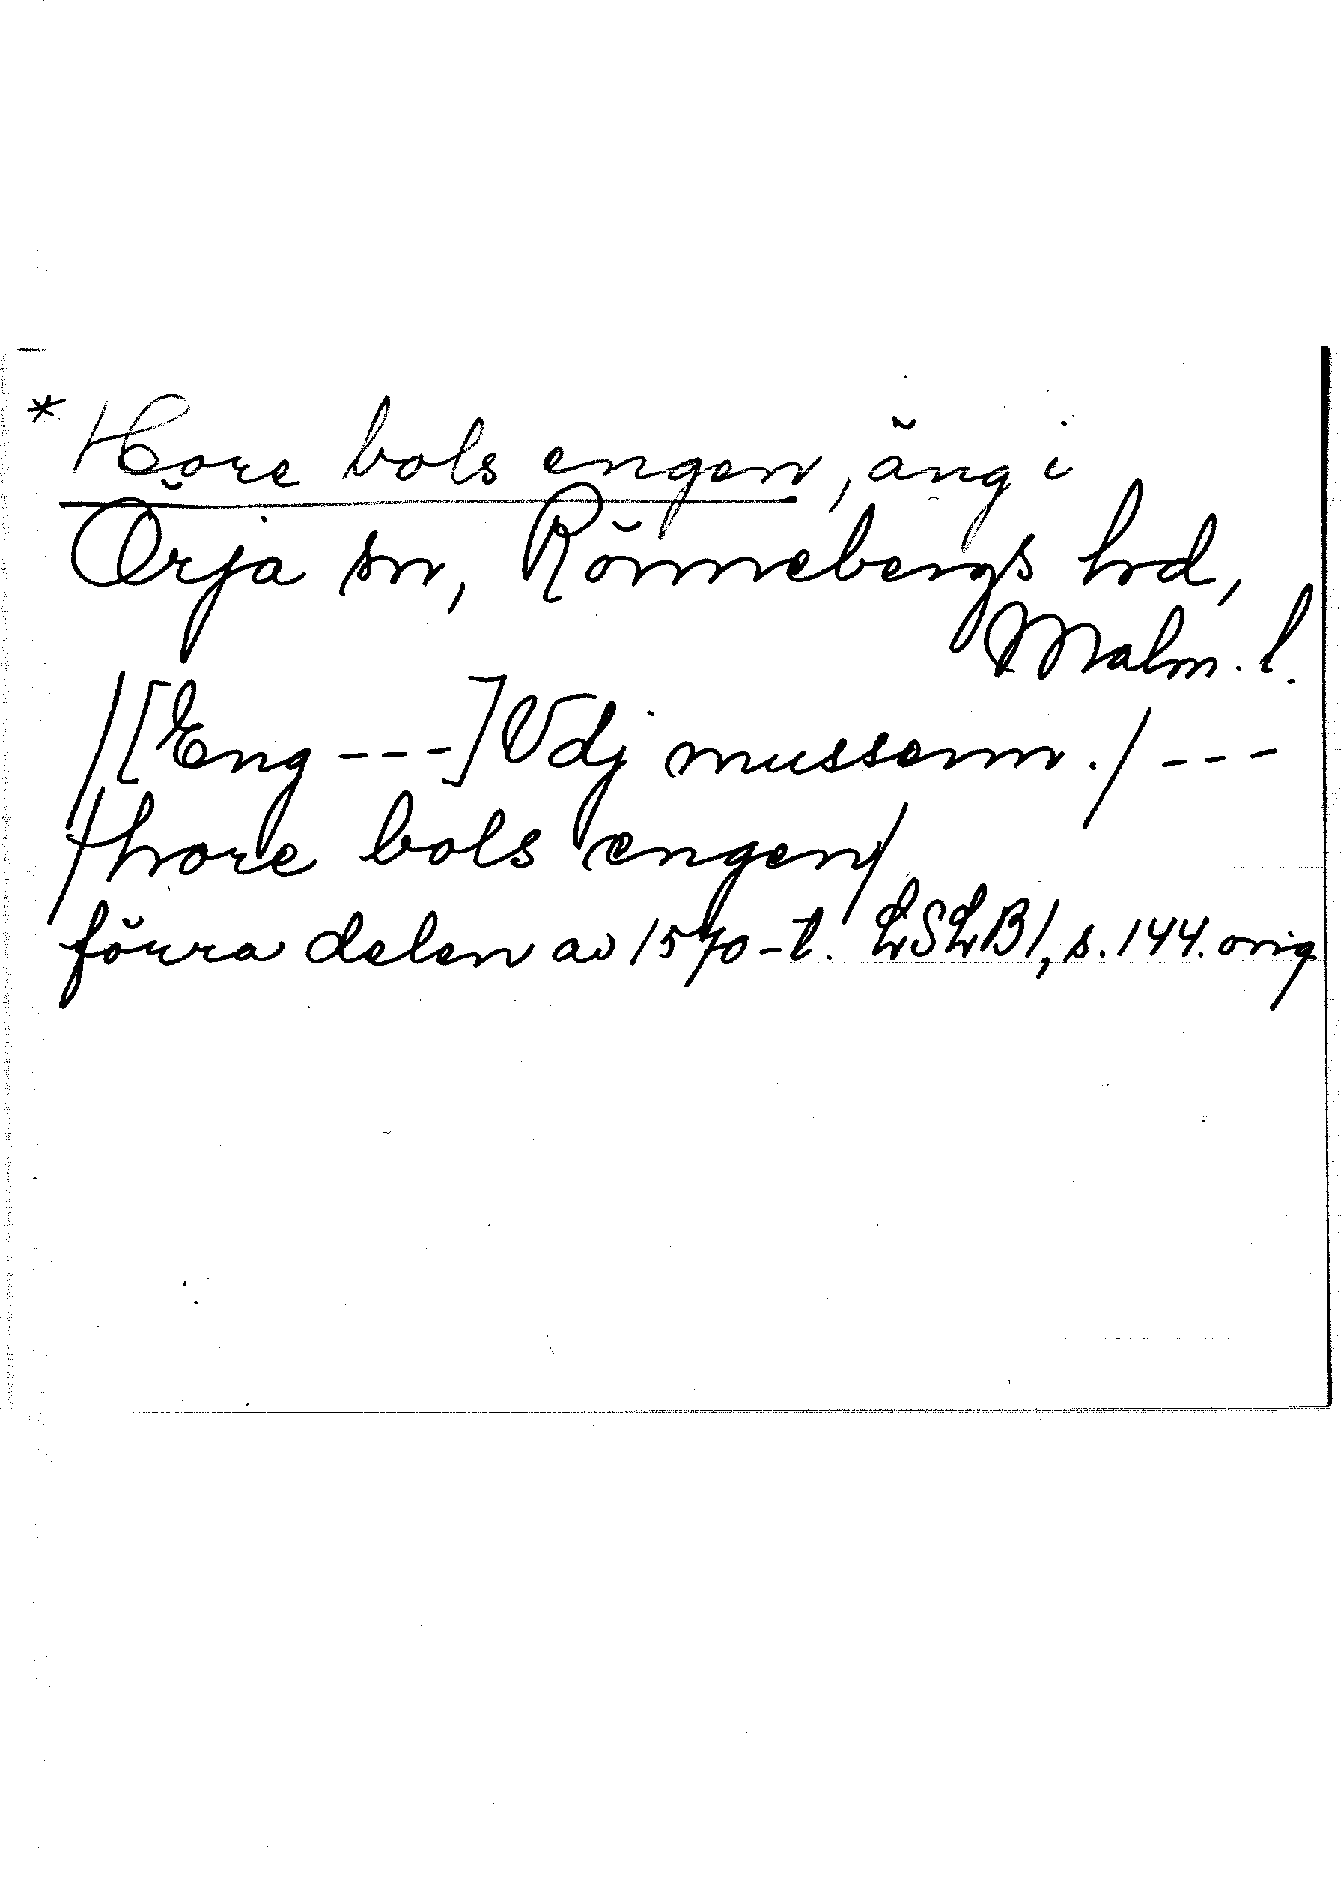 * Hore bols engen, äng i
Örja sn, Rönnebergs hrd,
Malm. l.
/[Eng ---] Vdj mussenn./ ---
/hore bols engen/
förra delen av 1570-t. LSLB1, s. 144. orig